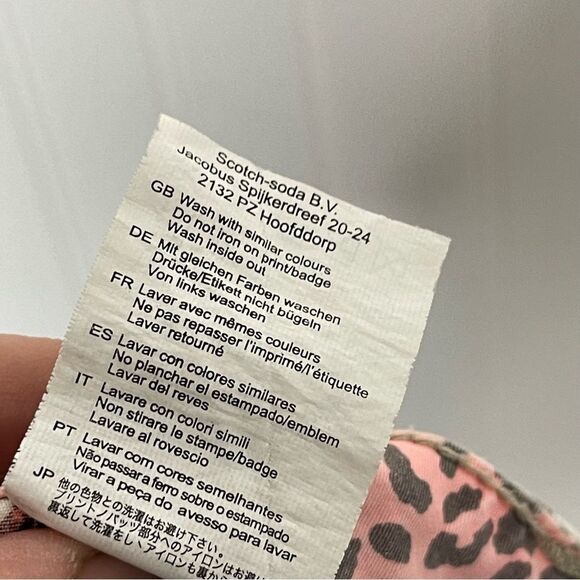 Scotch-soda B.V.
Jacobus Spijkerdreef 20-24
2132 PZ Hoofddorp
GB Wash with similar colours
Do not iron on print/badge
Wash inside out
DE Mit gleichen Farben waschen
Drücke/Etikett nicht bügeln
Von links waschen
FR Laver avec mêmes couleurs
Ne pas repasser l'imprimé/l'étiquette
Laver retourné
ES Lavar con colores similares
No planchar el estampado/emblem
Lavar del reves
IT Lavare con colori simili
Non stirare le stampe/badge
Lavare al rovescio
PT Lavar com cores semelhantes
Não passar a ferro sobre o estampado
Virar a peça do avesso para lavar
JP 他の色物との洗濯はお避け下さい。
プリント・バッツ部分へのアイロンはお避け
裏返して洗濯しアイロンも裏か